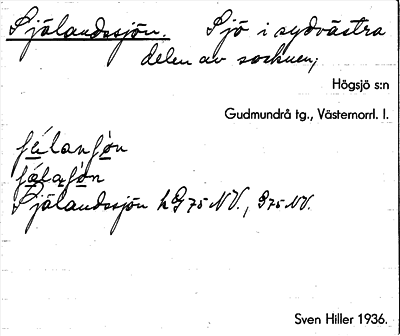 Själandssjön. Sjö i sydvästra
delen av socknen;
Högsjö s:n
Gudmundrå tg., Västernorrl. l.
Själandssjön hG75NV., G75NV.
Sven Hiller 1936.